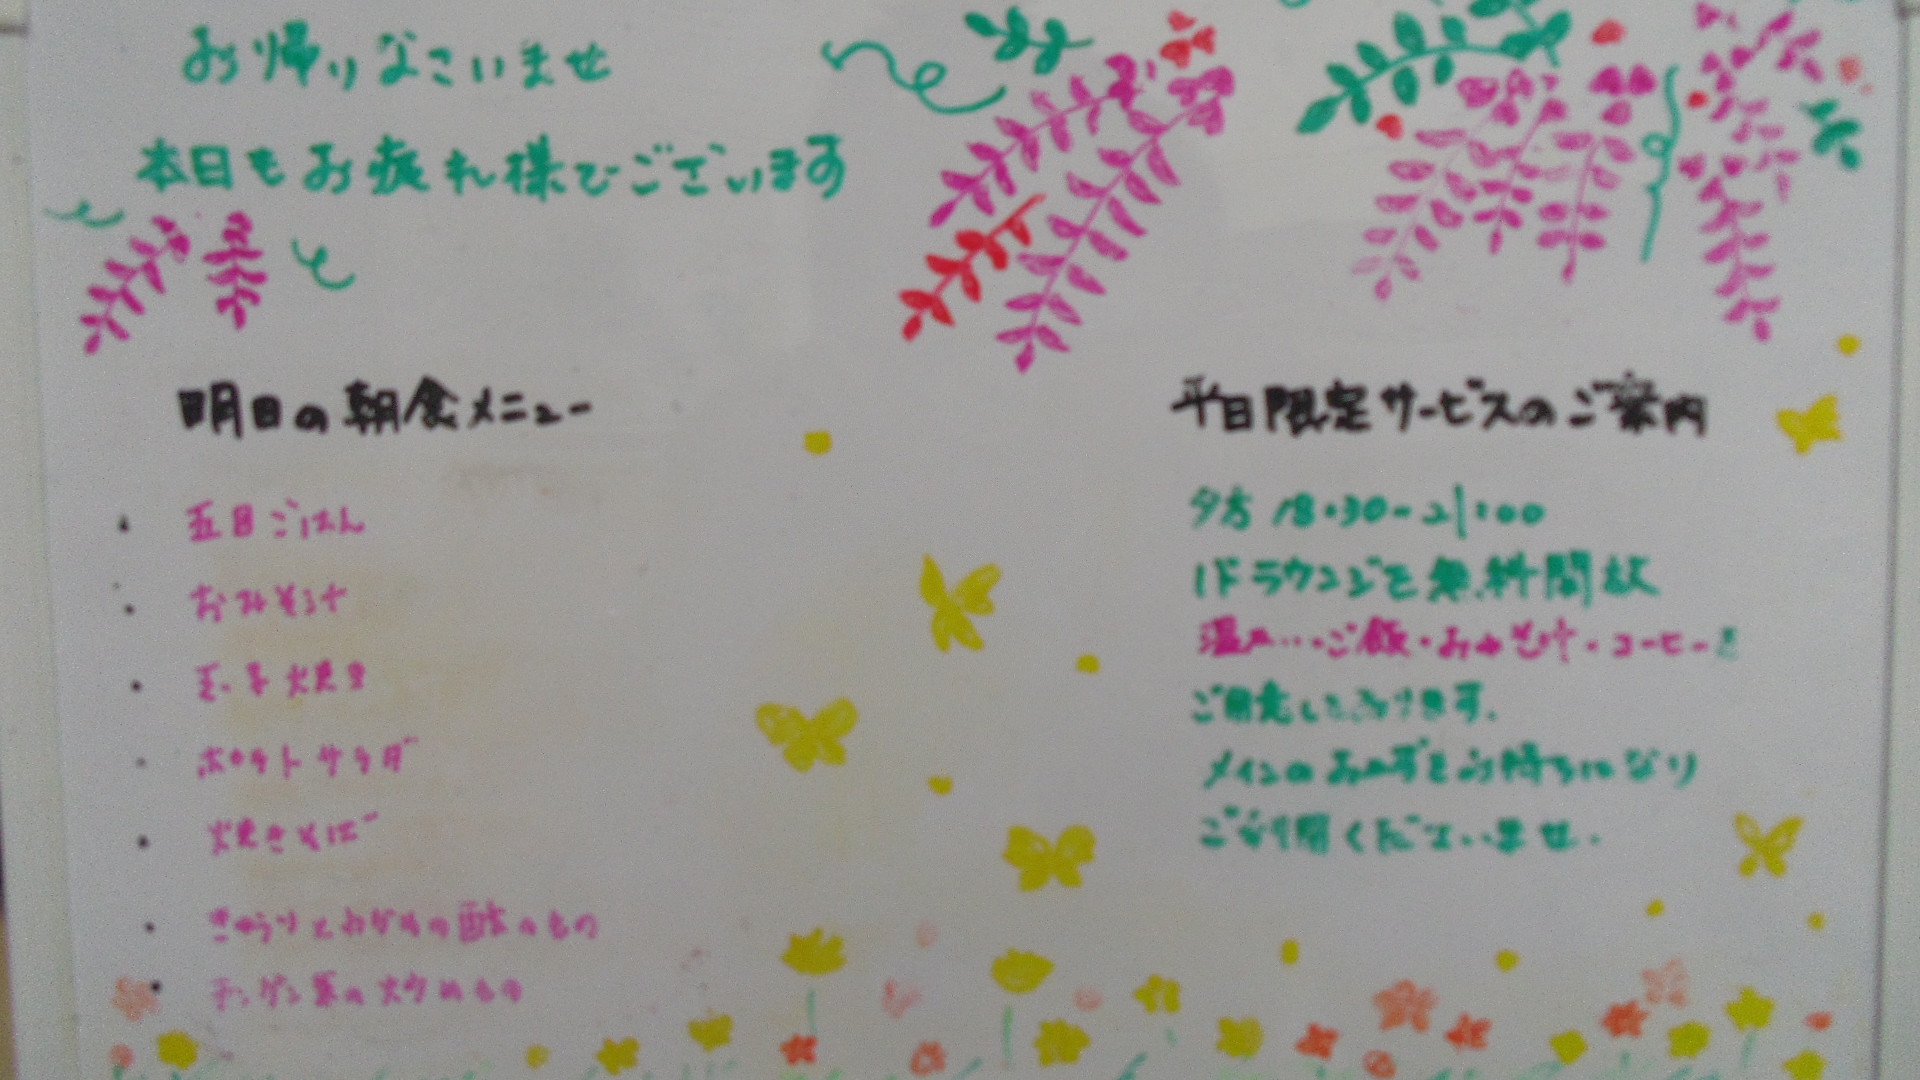 お帰りなさいませ
本日もお疲れ様でございます
明日の朝食メニュー
・五目ごはん
・おみそ汁
・玉子焼き
・ポテトサラダ
・焼きそば
・きゅうりとわかめの酢のもの
・チンゲン菜の炒めもの
平日限定サービスのご案内
夕方 18:30-21:00
1Fラウンジを無料開放
ご飯・おみそ汁・コーヒーを
ご用意しております。
メインのおかずをお持ちになり
ご利用くださいませ。